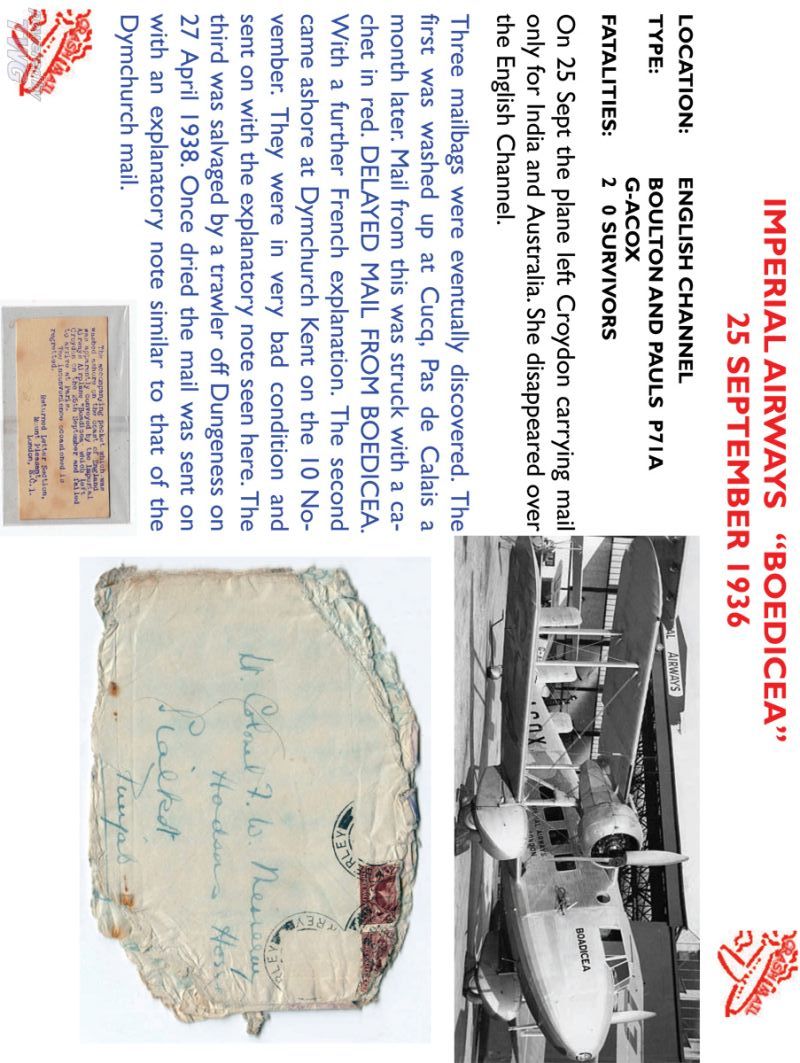 IMPERIAL AIRWAYS "BOEDICEA"
25 SEPTEMBER 1936
LOCATION: ENGLISH CHANNEL
TYPE: BOULTON AND PAULS P71A
G-ACOX
FATALITIES: 2 0 SURVIVORS
On 25 Sept the plane left Croydon carrying mail
only for India and Australia. She disappeared over
the English Channel.
Three mailbags were eventually discovered. The
first was washed up at Cucq, Pas de Calais a
month later. Mail from this was struck with a ca-
chet in red. DELAYED MAIL FROM BOEDICEA.
With a further French explanation. The second
came ashore at Dymchurch Kent on the 10 No-
vember. They were in very bad condition and
sent on with the explanatory note seen here. The
third was salvaged by a trawler off Dungeness on
27 April 1938. Once dried the mail was sent on
with an explanatory note similar to that of the
Dymchurch mail.
The accompanying packet which was
washed ashore on the coast of England
was apparently conveyed by the Imperial
Airways Airplane "Boadicea" which left
Croydon on the 25th September and failed
to arrive at Paris.
The inconvenience occasioned is
regretted.
Returned Letter Section,
Mount Pleasant,
London, E.C.1.
AL AIRWAYS
COX
AL AIRWAY
BOADICEA
Lt. Colonel F. W.
Hodsons Horse
Sialkot
Punjab
RLEY
RREY
RLEY